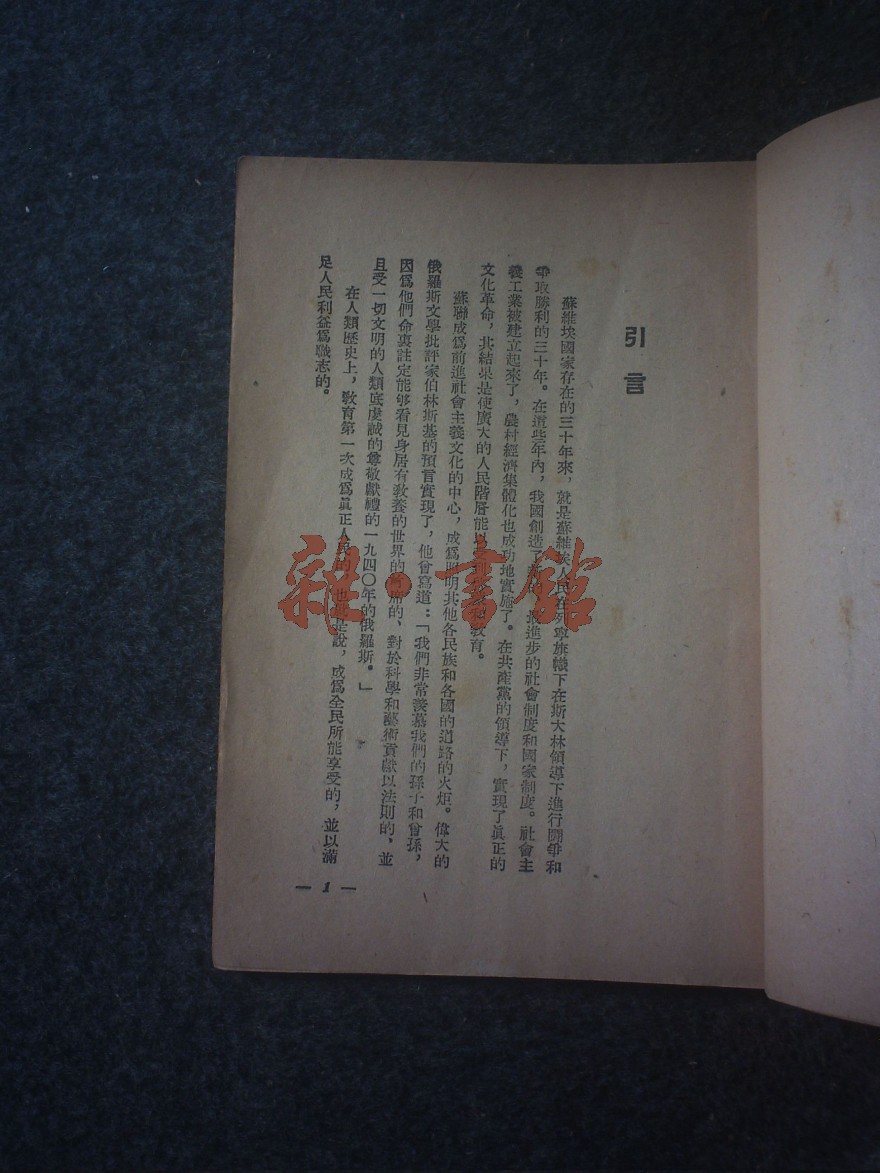 引言
蘇維埃國家存在的三十年來，就是蘇維埃人民在列寧旗幟下在斯大林領導下進行鬭爭和
爭取勝利的三十年。在這些年內，我國創造了最進步的社會制度和國家制度。社會主
義工業被建立起來了，農村經濟集體化也成功地實施了。在共產黨的領導下，實現了眞正的
文化革命，其結果是使廣大的人民階層能以教育。
蘇聯成爲前進社會主義文化的中心，成爲照明其他各民族和各國的道路的火炬。偉大的
俄羅斯文學批評家伯林斯基的預言實現了，他曾寫道：「我們非常羨慕我們的孫子和曾孫，
因爲他們命裏註定能够看見身居有敎養的世界的首席的、對於科學和藝術貢獻以法則的，並
且受一切文明的人類底虔誠的尊敬獻禮的一九四〇年的俄羅斯。」
在人類歷史上，敎育第一次成爲眞正人民的，也就是說，成爲全民所能享受的，並以滿
足人民利益爲職志的。
— 1 —
雜·書館